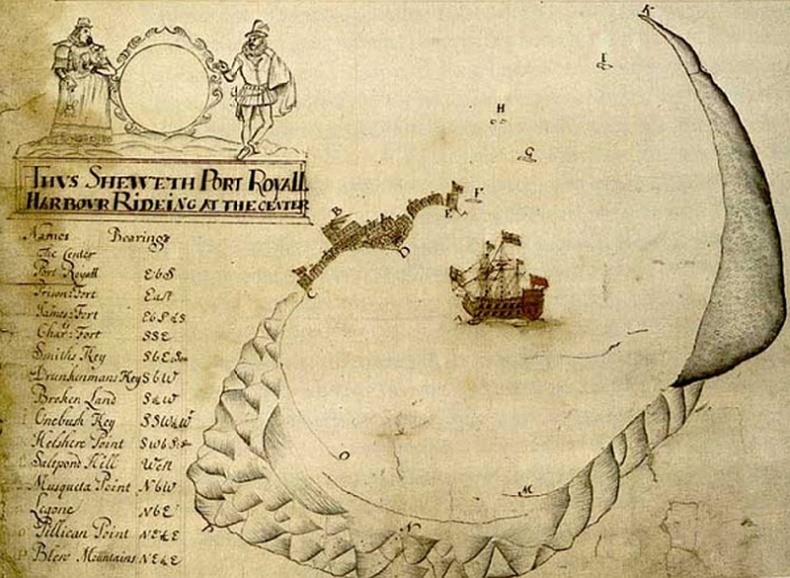 THVS SHEWETH PORT ROYALL
HARBOUR RIDEING AT THE CENTER
Names Bearings
The Center
Port Royall EbS
Prison: Fort East
James: Fort
Char: Fort SSE
Smiths Key
Drunkenmans Key SbW
Broken Land
Onebush Key
Helshere Point
Saltpond Hill West
Musqueta Point NbW
Legone NbE
Pillican Point
Blew Mountains
K
I
H
G
F
E
B
D
C
O
M
N